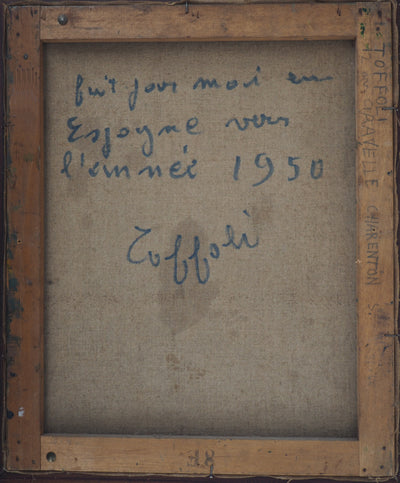 fait par moi en
Espagne vers
l'année 1950
Toffoli
TOFFOLI
CHARENTON
18